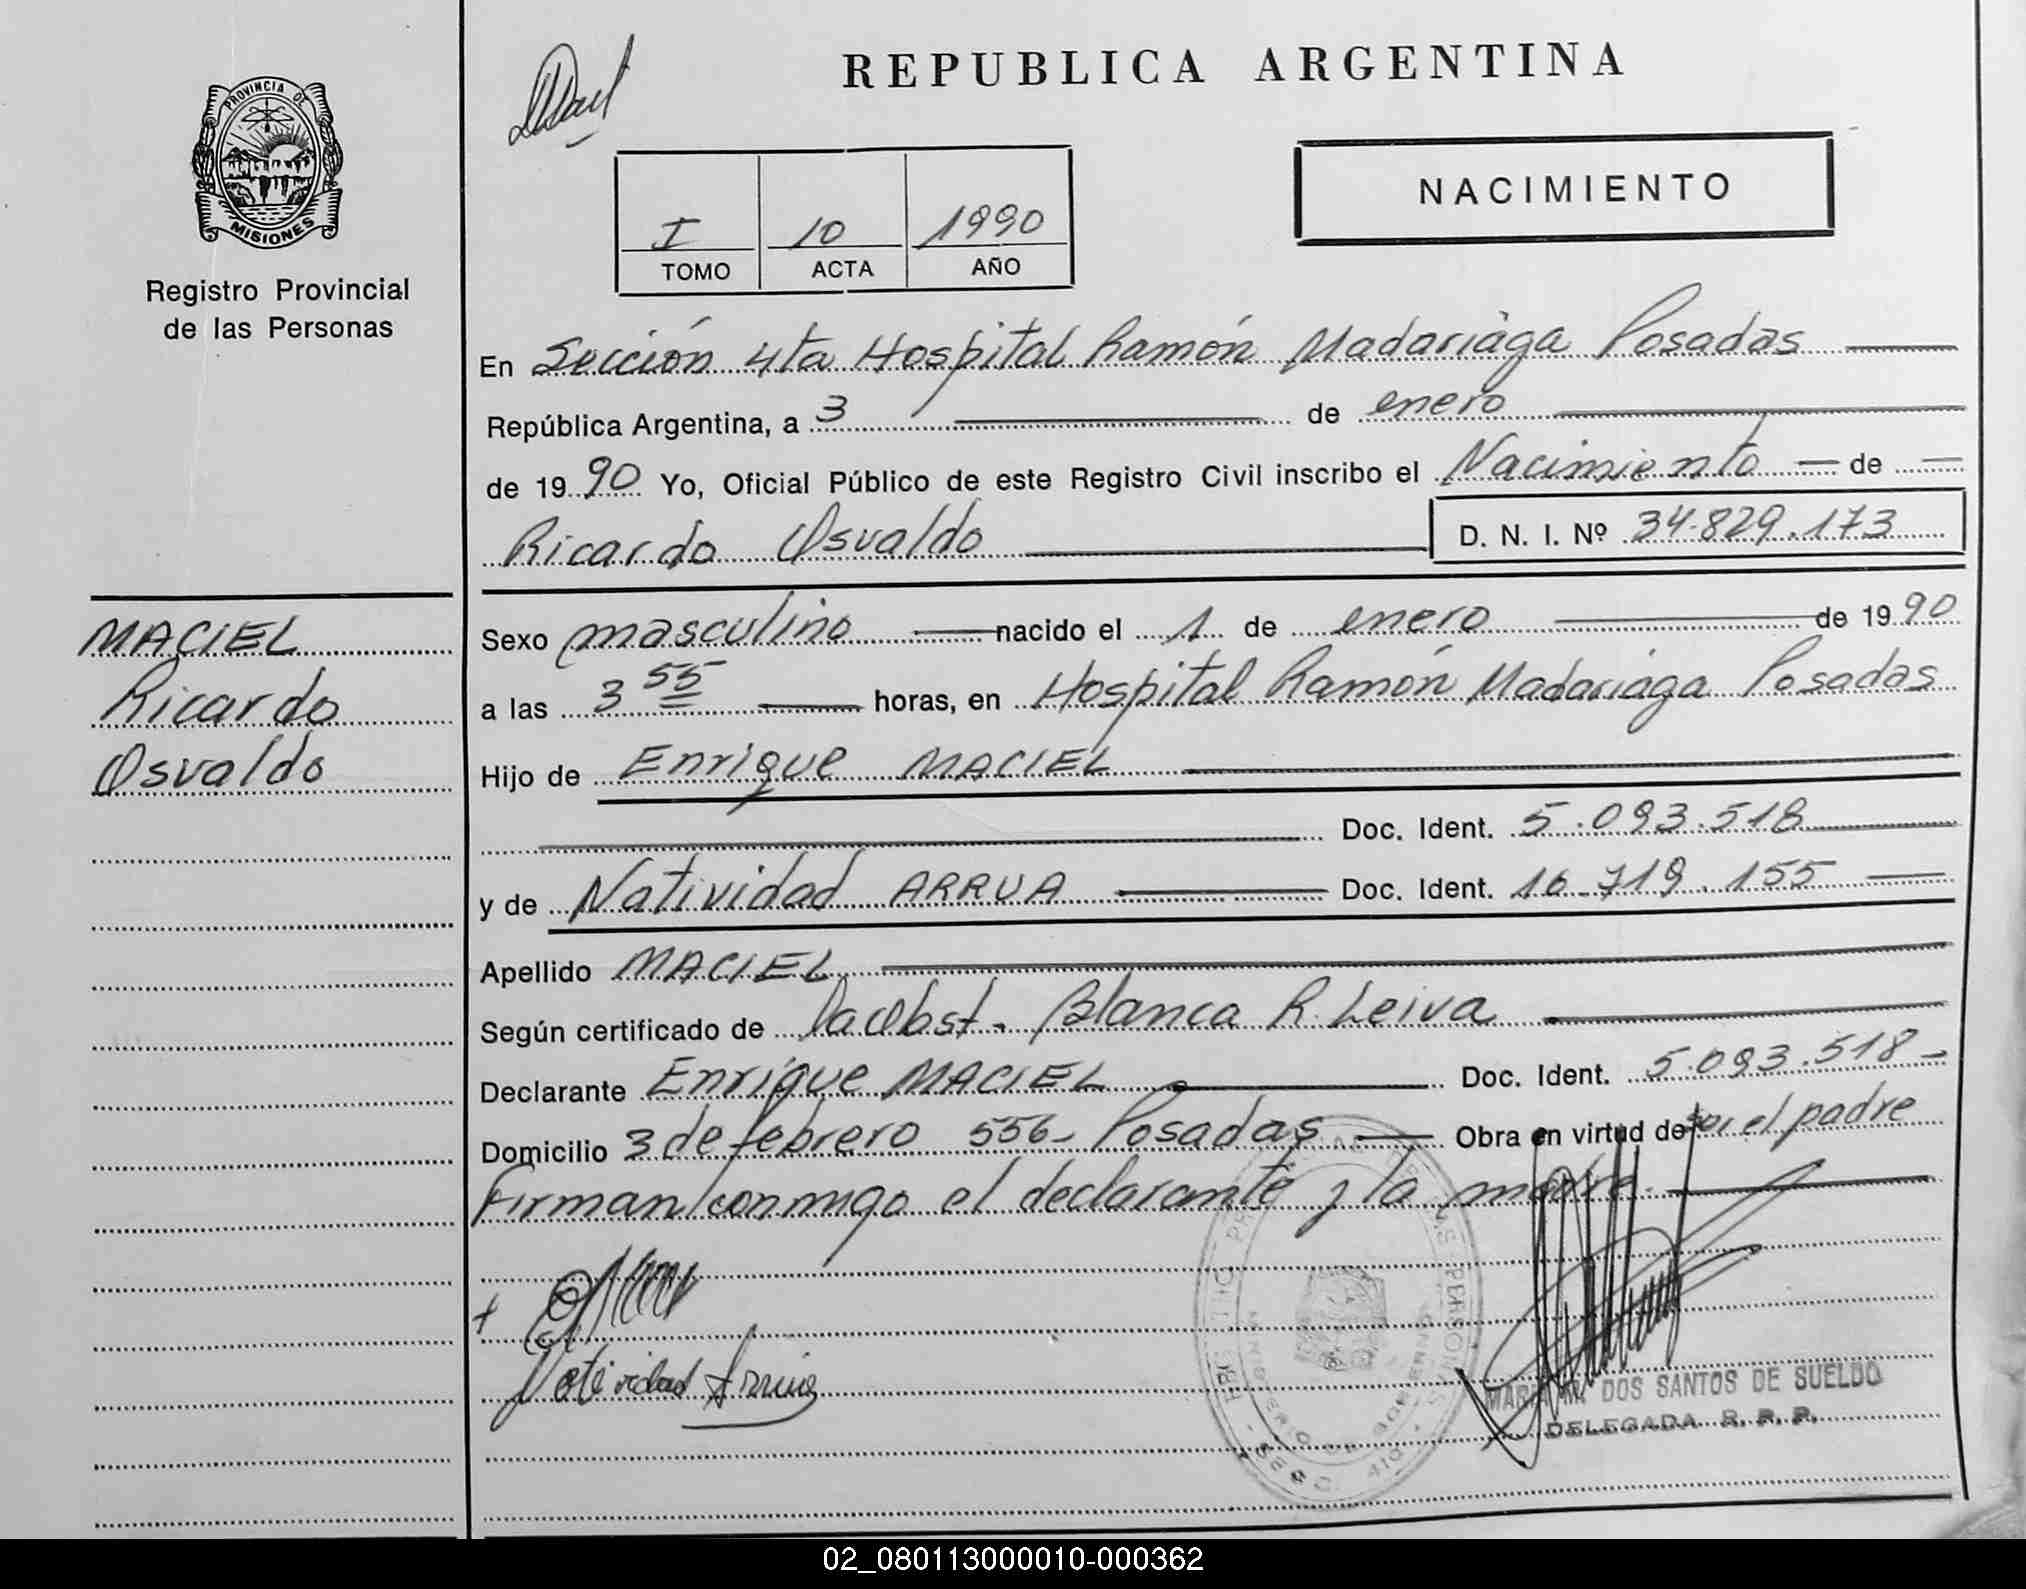 REPUBLICA ARGENTINA
PROVINCIA DE
MISIONES
Registro Provincial
de las Personas
I 10 1990
TOMO ACTA AÑO
NACIMIENTO
En Sección 4ta Hospital Ramón Madariaga Posadas
República Argentina, a 3 de enero
de 1990 Yo, Oficial Público de este Registro Civil inscribo el Nacimiento de
Ricardo Osvaldo D. N. I. Nº 34.829.173
MACIEL
Ricardo
Osvaldo
Sexo masculino nacido el 1 de enero de 1990
a las 3 55 horas, en Hospital Ramón Madariaga Posadas
Hijo de Enrique MACIEL
Doc. Ident. 5.093.518
y de Natividad ARRUA Doc. Ident. 16.719.155
Apellido MACIEL
Según certificado de Blanca R. Leiva
Declarante Enrique MACIEL Doc. Ident. 5.093.518
Domicilio 3 de febrero 556 - Posadas Obra en virtud de ser el padre
Firman conmigo el declarante y la madre
Natividad Arrua
MARIA M. DOS SANTOS DE SUELDO
DELEGADA R. P. P.
02_080113000010-000362